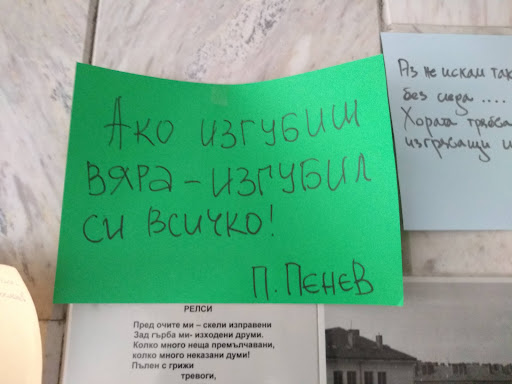 Ако изгубиш
вяра - изгубил
си всичко!
П. Пенев
Аз не искам
без следа ....
Хората
изгряващи
РЕЛСИ
Пред очите ми – скели изправени
Зад гърба ми- изходени друми.
Колко много неща премълчавани,
колко много неказани думи!
Пълен с грижи
тревоги,